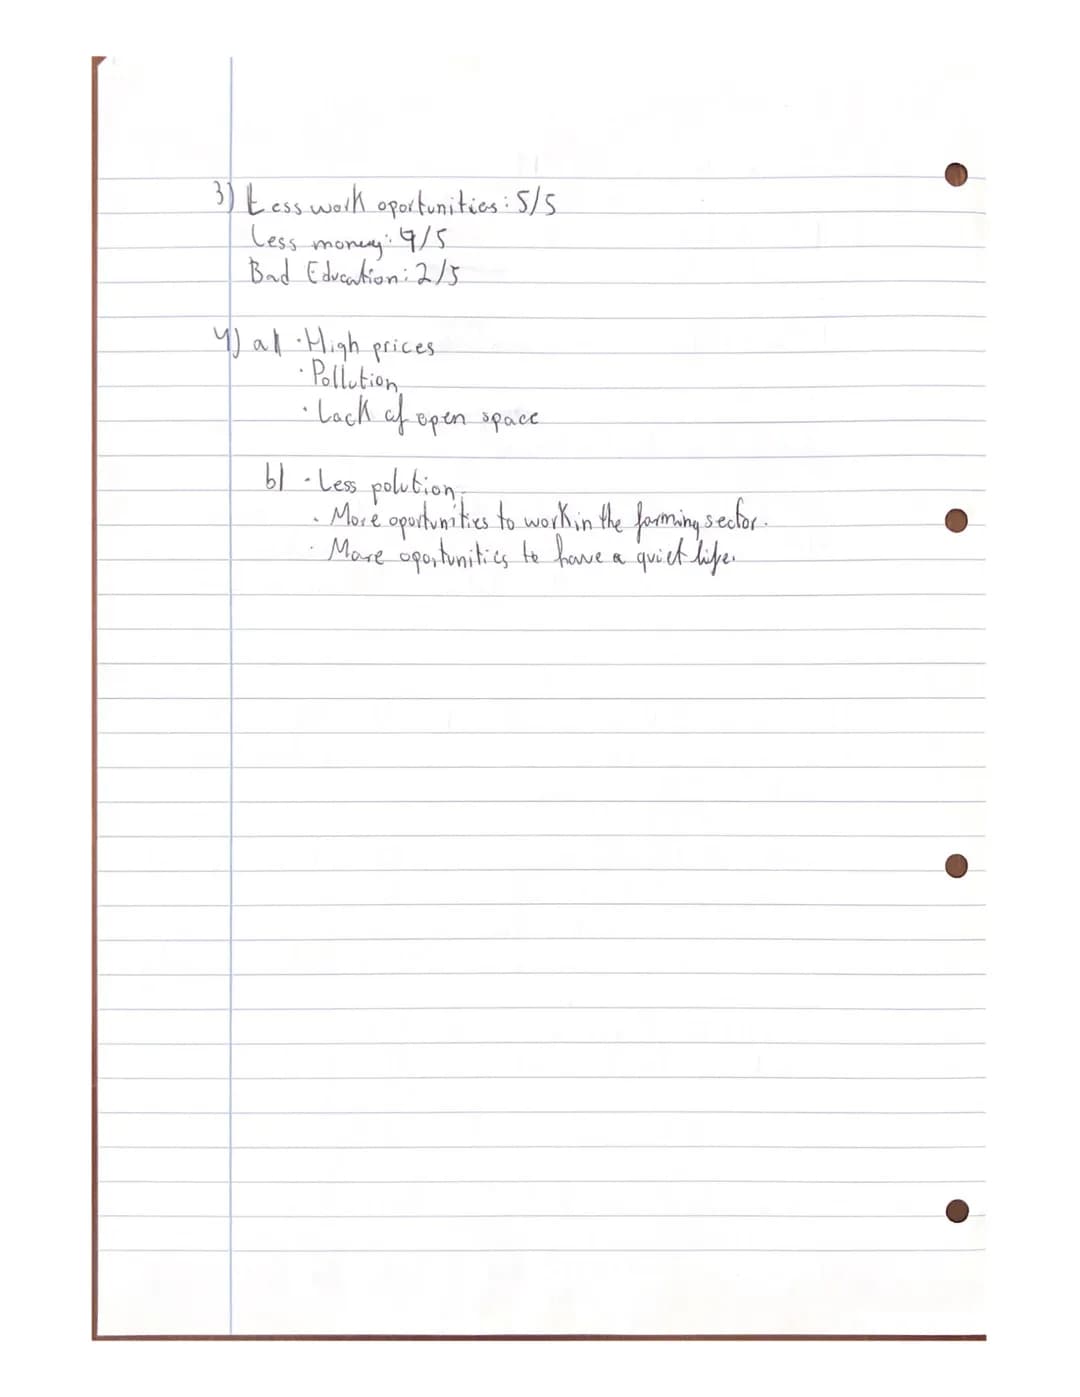 3) Less work oportunities: 5/5
Less money: 4/5
Bad Education: 2/5
4) a) · High prices
· Pollution
· Lack of open space
b) · Less polution
· More oportunities to work in the farming sector.
· More oportunities to have a quiet life.